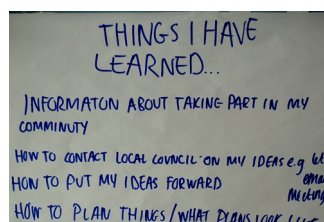 THINGS I HAVE
LEARNED...
INFORMATON ABOUT TAKING PART IN MY
COMMINUTY
HOW TO CONTACT LOCAL COUNCIL ON MY IDEAS e.g
HOW TO PUT MY IDEAS FORWARD
Meeting
HOW TO PLAN THINGS / WHAT PLANS LOOK